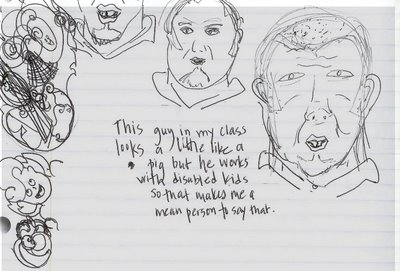 This guy in my class
looks a little like a
pig but he works
with disabled kids
so that makes me a
mean person to say that.